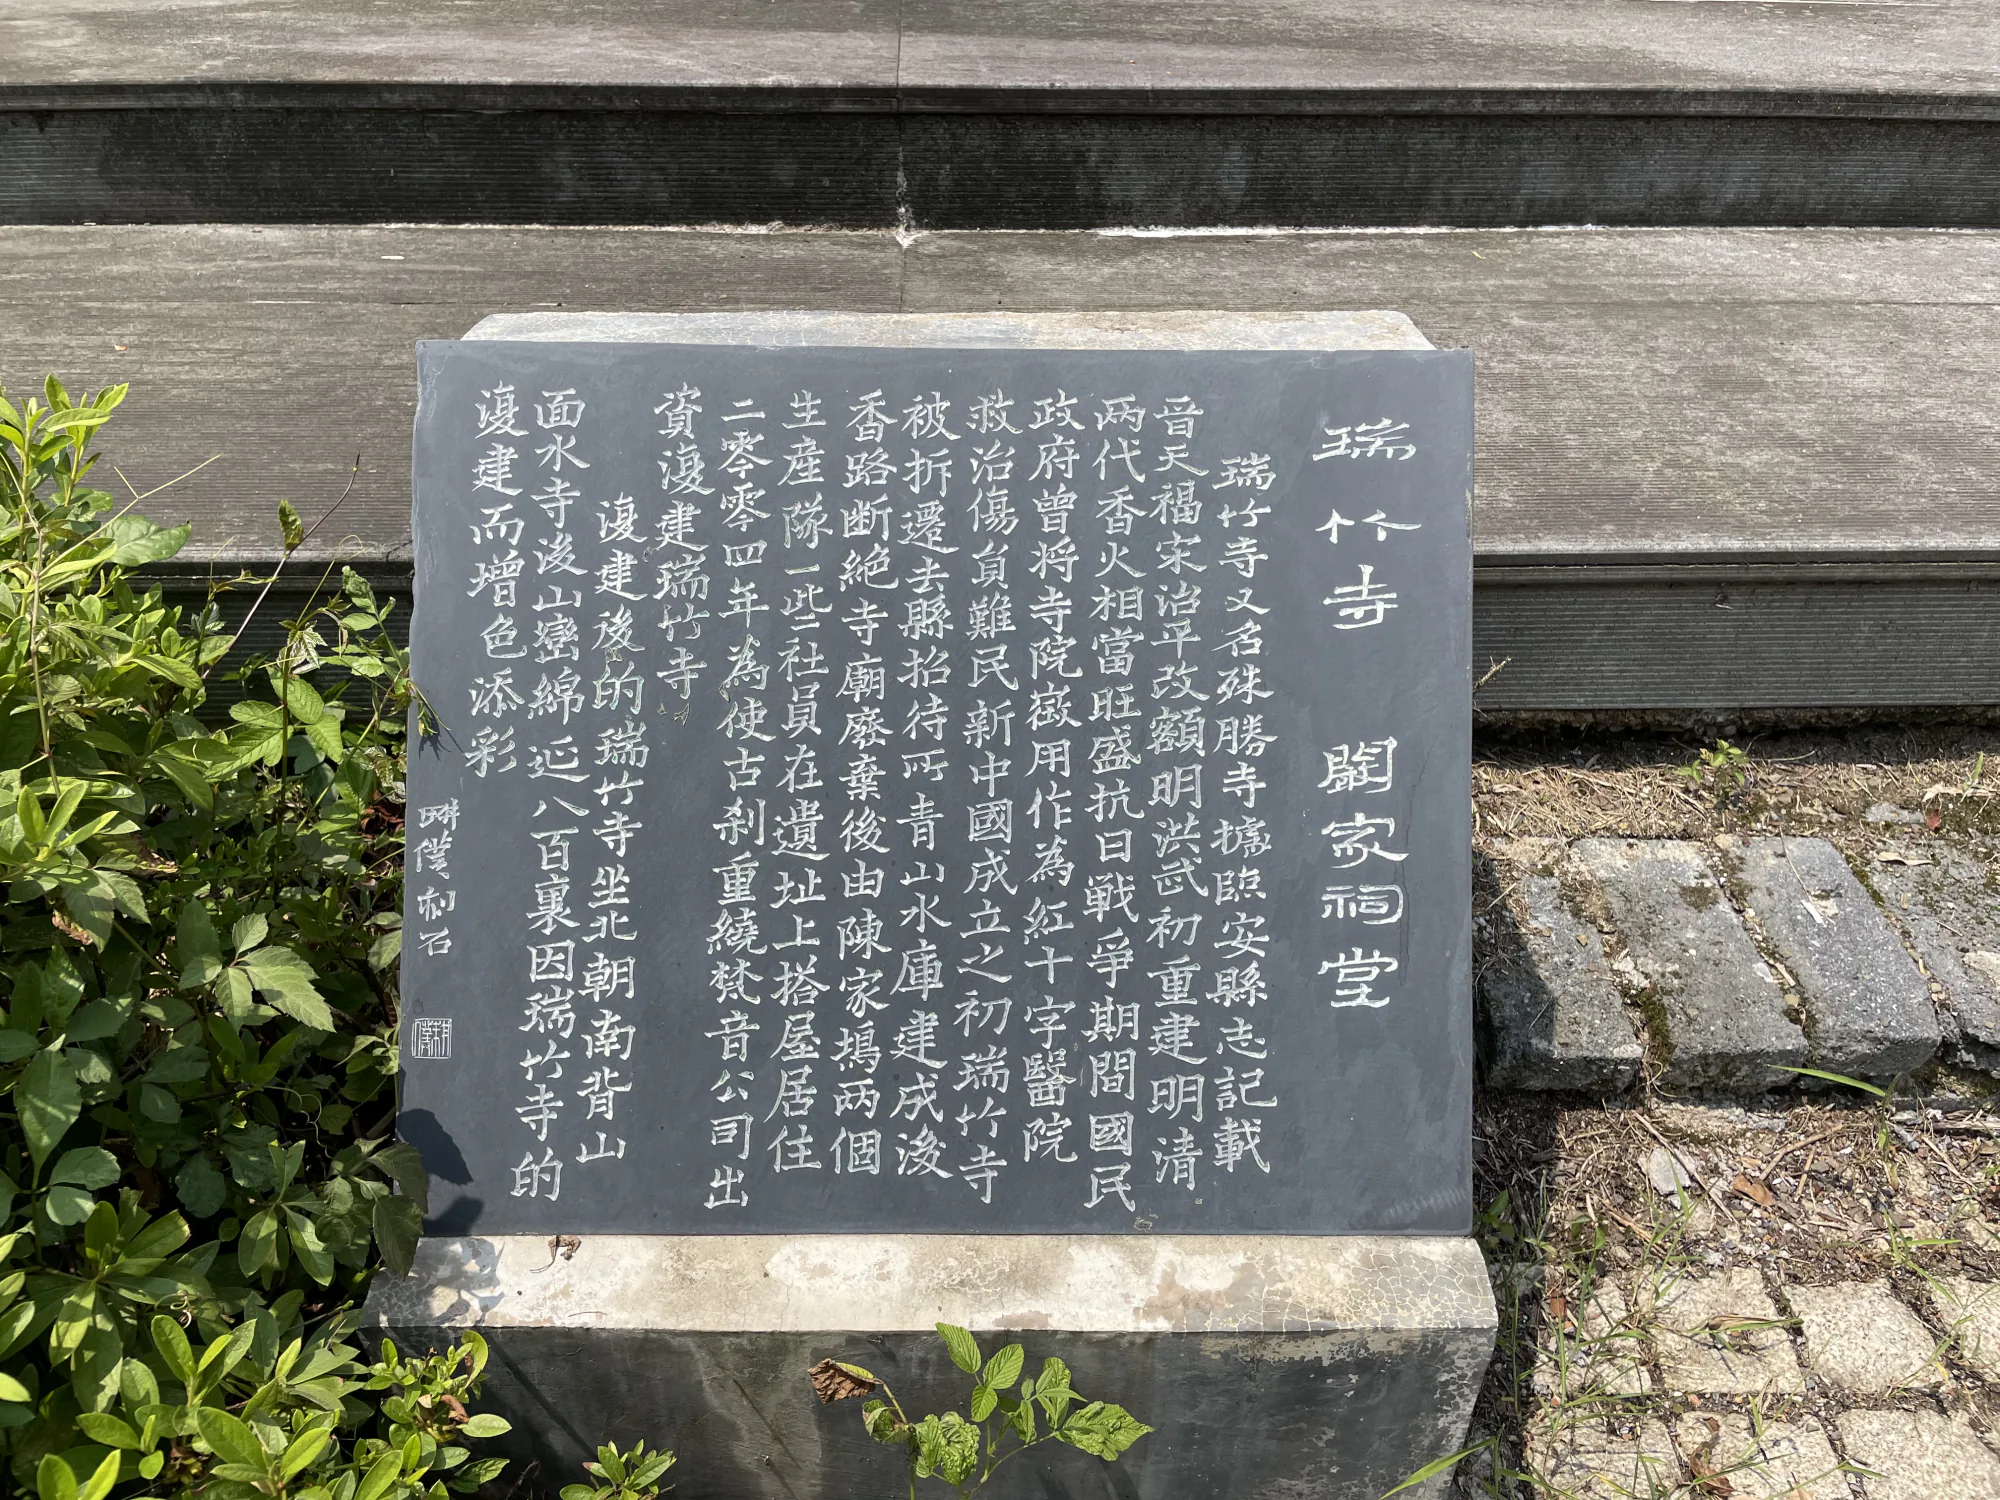 瑞竹寺 闞家祠堂
瑞竹寺又名殊勝寺據臨安縣志記載
晉天福宋治平改額明洪武初重建明清
两代香火相當旺盛抗日戰爭期間國民
政府曾将寺院徵用作為紅十字醫院
救治傷負難民新中國成立之初瑞竹寺
被拆遷去縣招待所青山水庫建成後
香路断絶寺廟廢棄後由陳家塢两個
生産隊一些社員在遺址上搭屋居住
二零零四年為使古刹重繞梵音公司出
資復建瑞竹寺
復建後的瑞竹寺坐北朝南背山
面水寺後山巒綿延八百裏因瑞竹寺的
復建而增色添彩
刻石